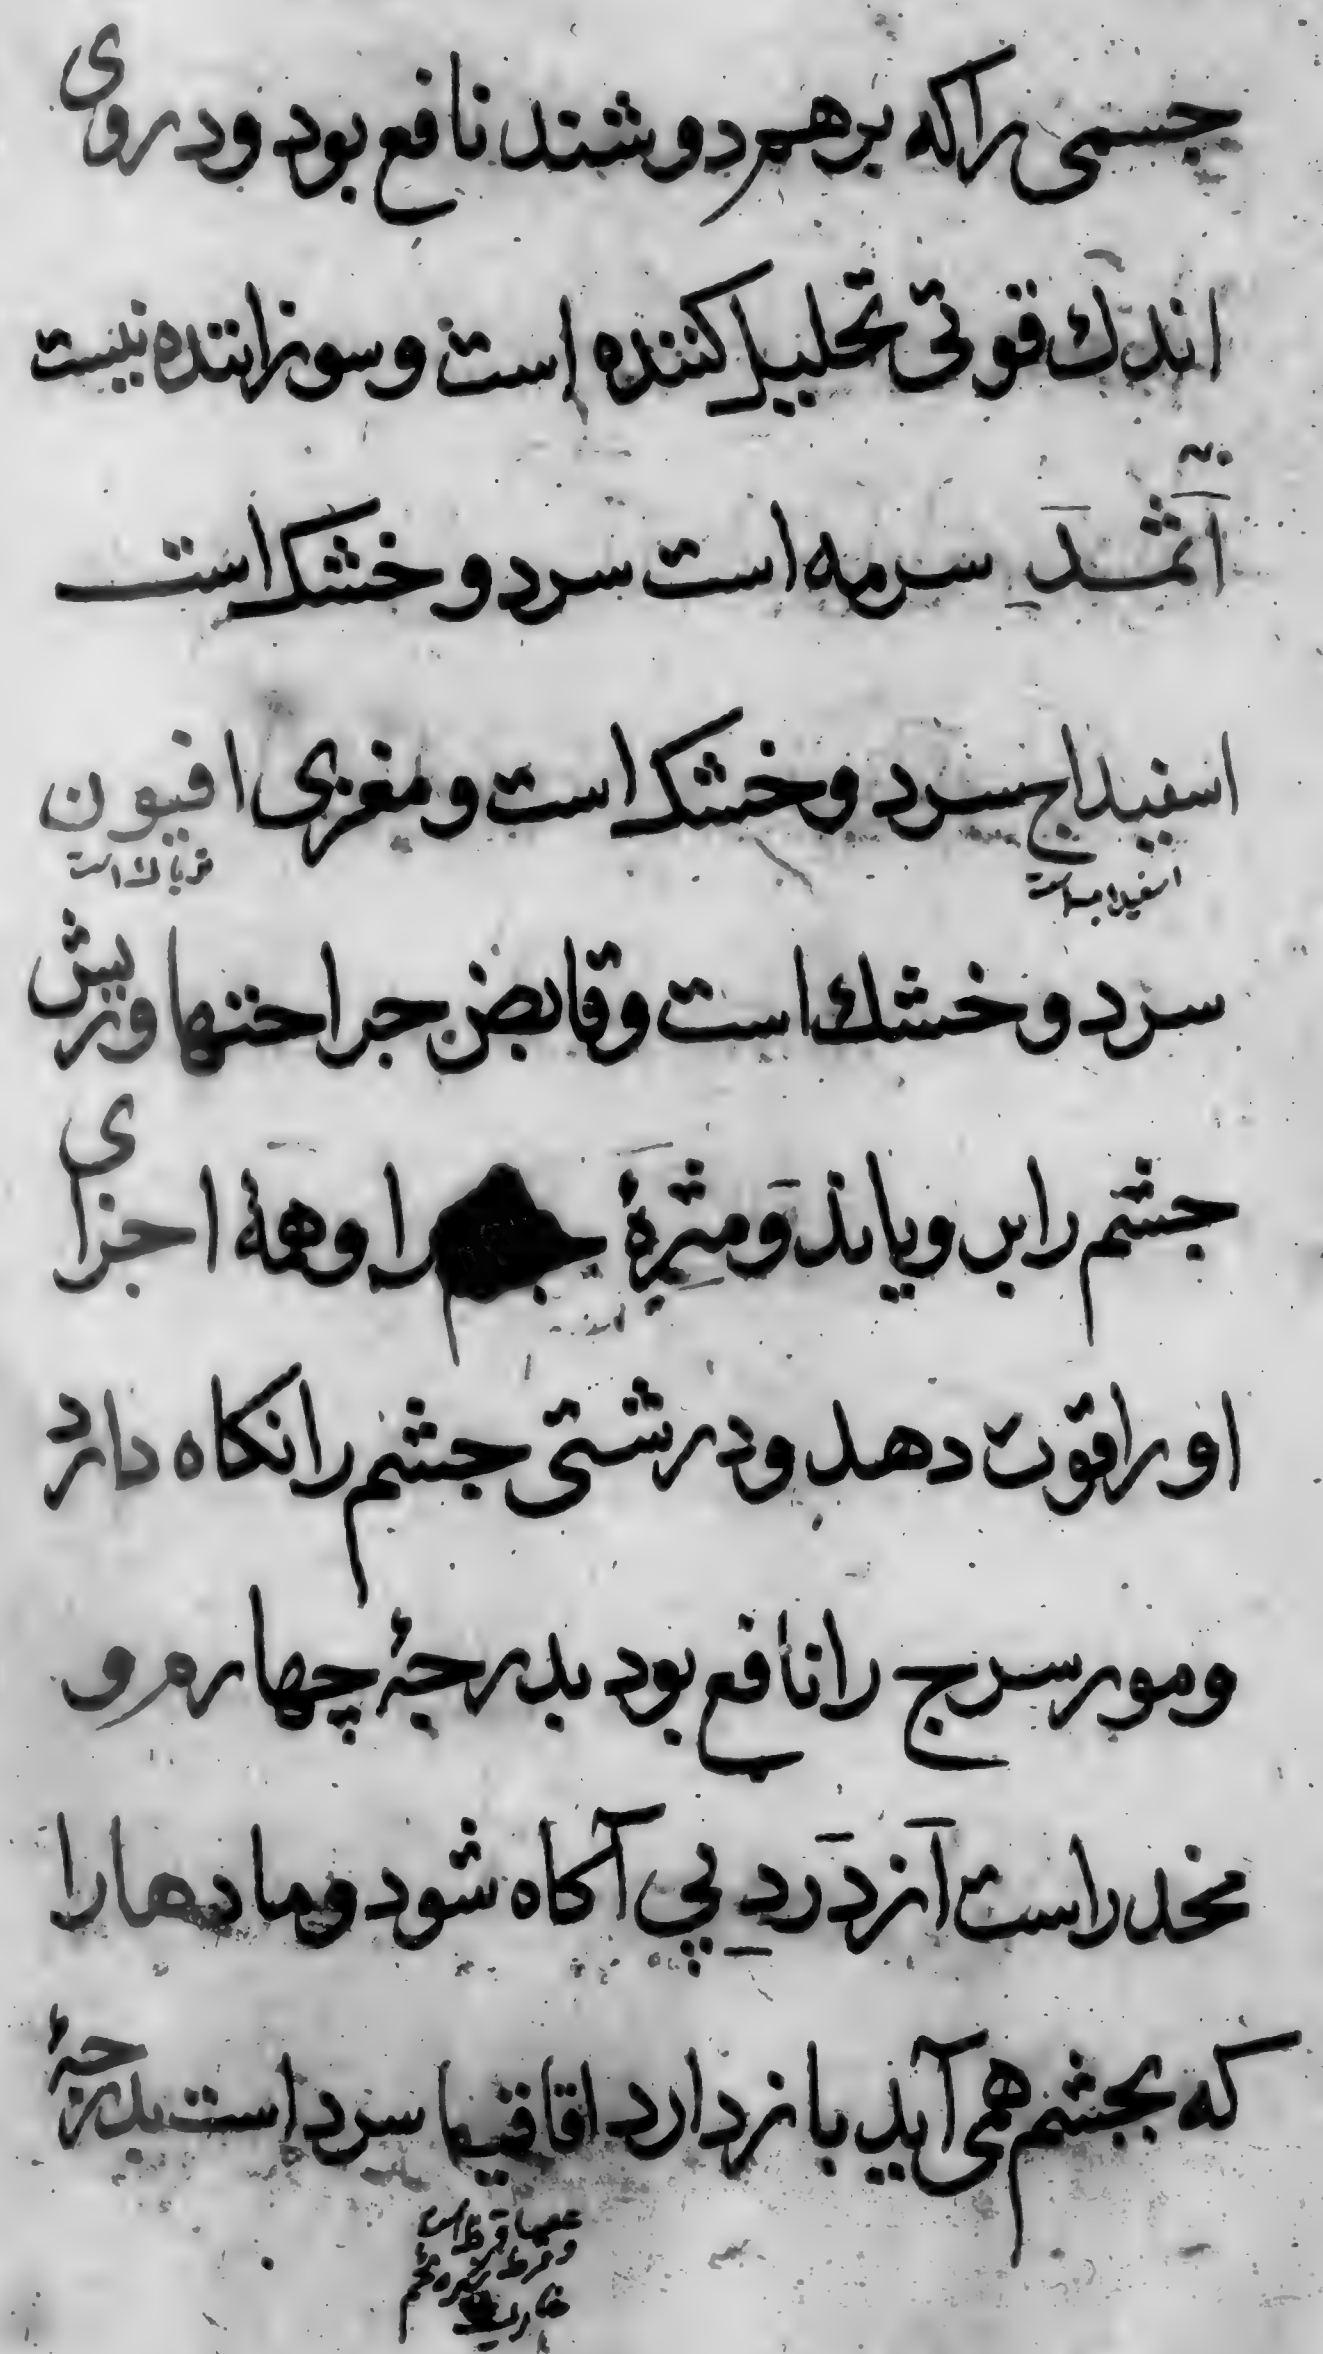 جسمی را که بر هم دوشند نافع بود و در روی
اندك قوتی تحلیل کننده است و سوزاننده نیست
اثمد سرمه است سرد و خشک است
اسفیداج سرد و خشک است و مغری افیون
اسفیداب است
تریاك است
سرد و خشك است و قابض جراحتها و ریش
جشم را برویاند و مژۀ را و همۀ اجزای
او را قوت دهد و درشتی جشم را نکاه دارد
و مورسرج را نافع بود بدرجۀ چهارم و
مخدر است از درد پی آکاه شود و مادها را
که بجشم همی آید باز دارد اقاقیا سرد است بدرجۀ